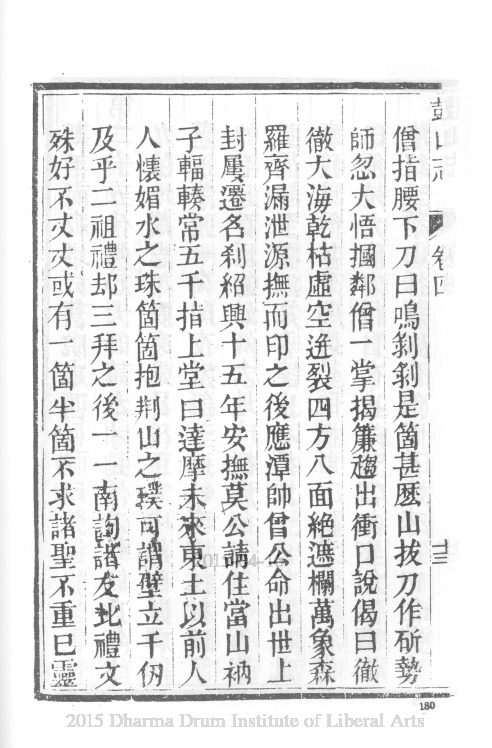 鼓山志
卷四
十三
僧指腰下刀曰鳴剝剝是箇甚麽山拔刀作斫勢
師忽大悟摑鄰僧一掌揭簾趨出衝口說偈曰徹
徹大海乾枯虛空迸裂四方八面絶遮欄萬象森
羅齊漏泄源撫而印之後應潭帥曾公命出世上
封屢遷名刹紹興十五年安撫莫公請住當山衲
子輻輳常五千指上堂曰達摩未來東土以前人
人懷媚水之珠箇箇抱荆山之璞可謂壁立千仞
及乎二祖禮却三拜之後一一南詢諸友北禮文
殊好不丈丈或有一箇半箇不求諸聖不重已靈
180
2015 Dharma Drum Institute of Liberal Arts